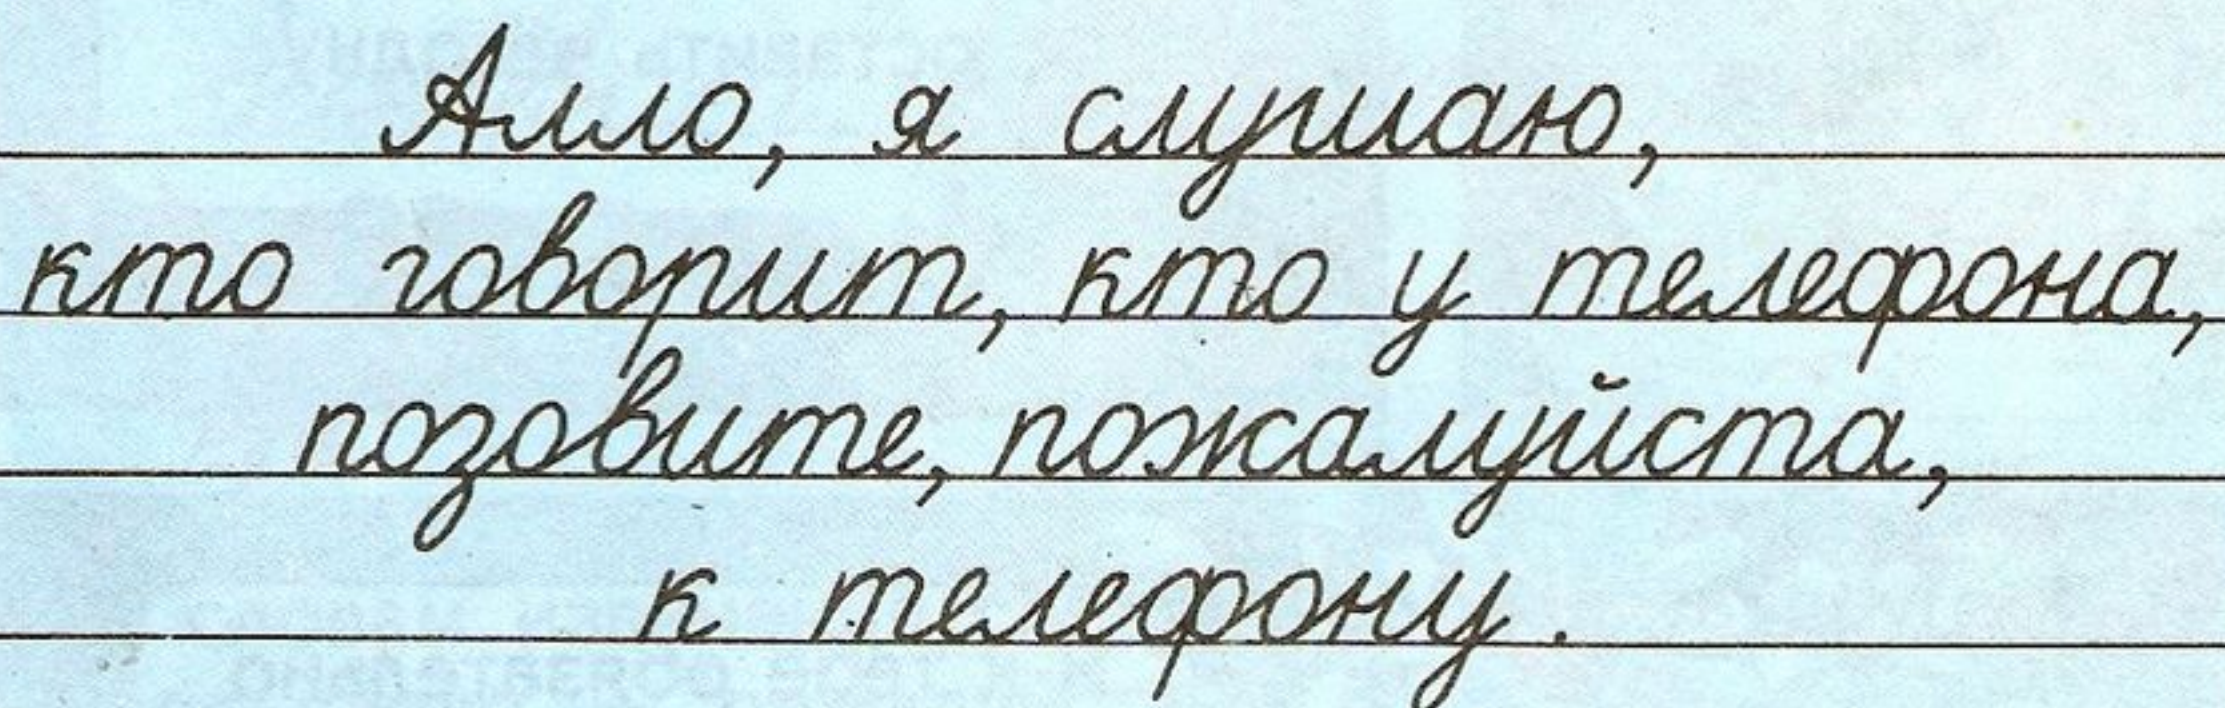 Алло, я слушаю,
кто говорит, кто у телефона,
позовите, пожалуйста,
к телефону.